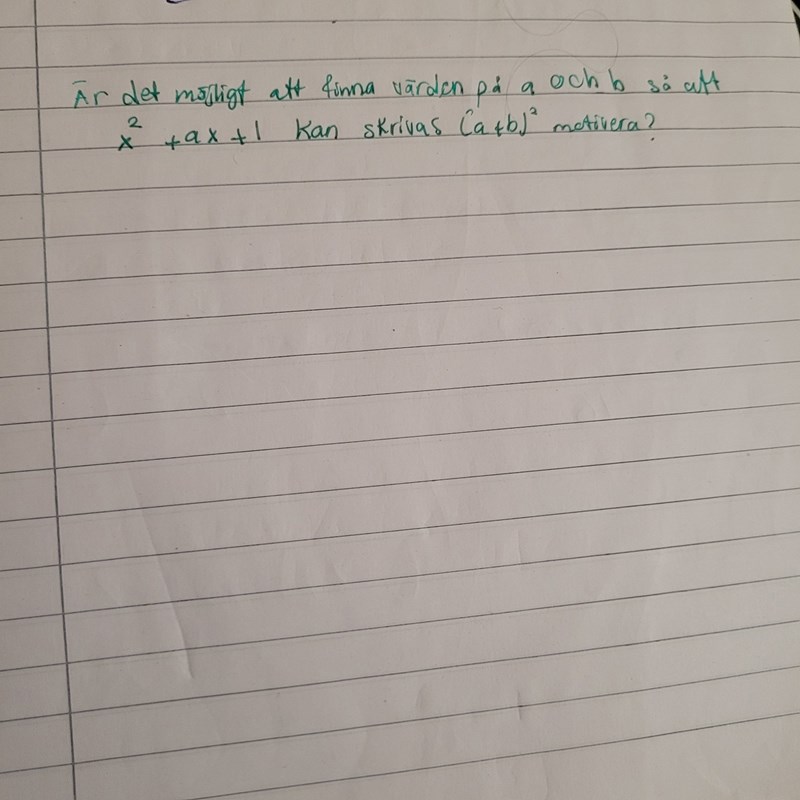 Är det möjligt att finna värden på a och b så att
x² + ax + 1 kan skrivas (a+b)² motivera?